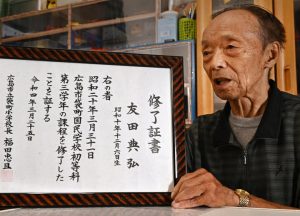 修了証書
友田典弘
昭和十年十二月六日生
右の者
昭和二十年三月三十一日
広島市立袋町国民学校初等科
第三学年の課程を修了した
ことを証する
令和四年三月二十五日
広島市立袋町小学校長 福田忠且